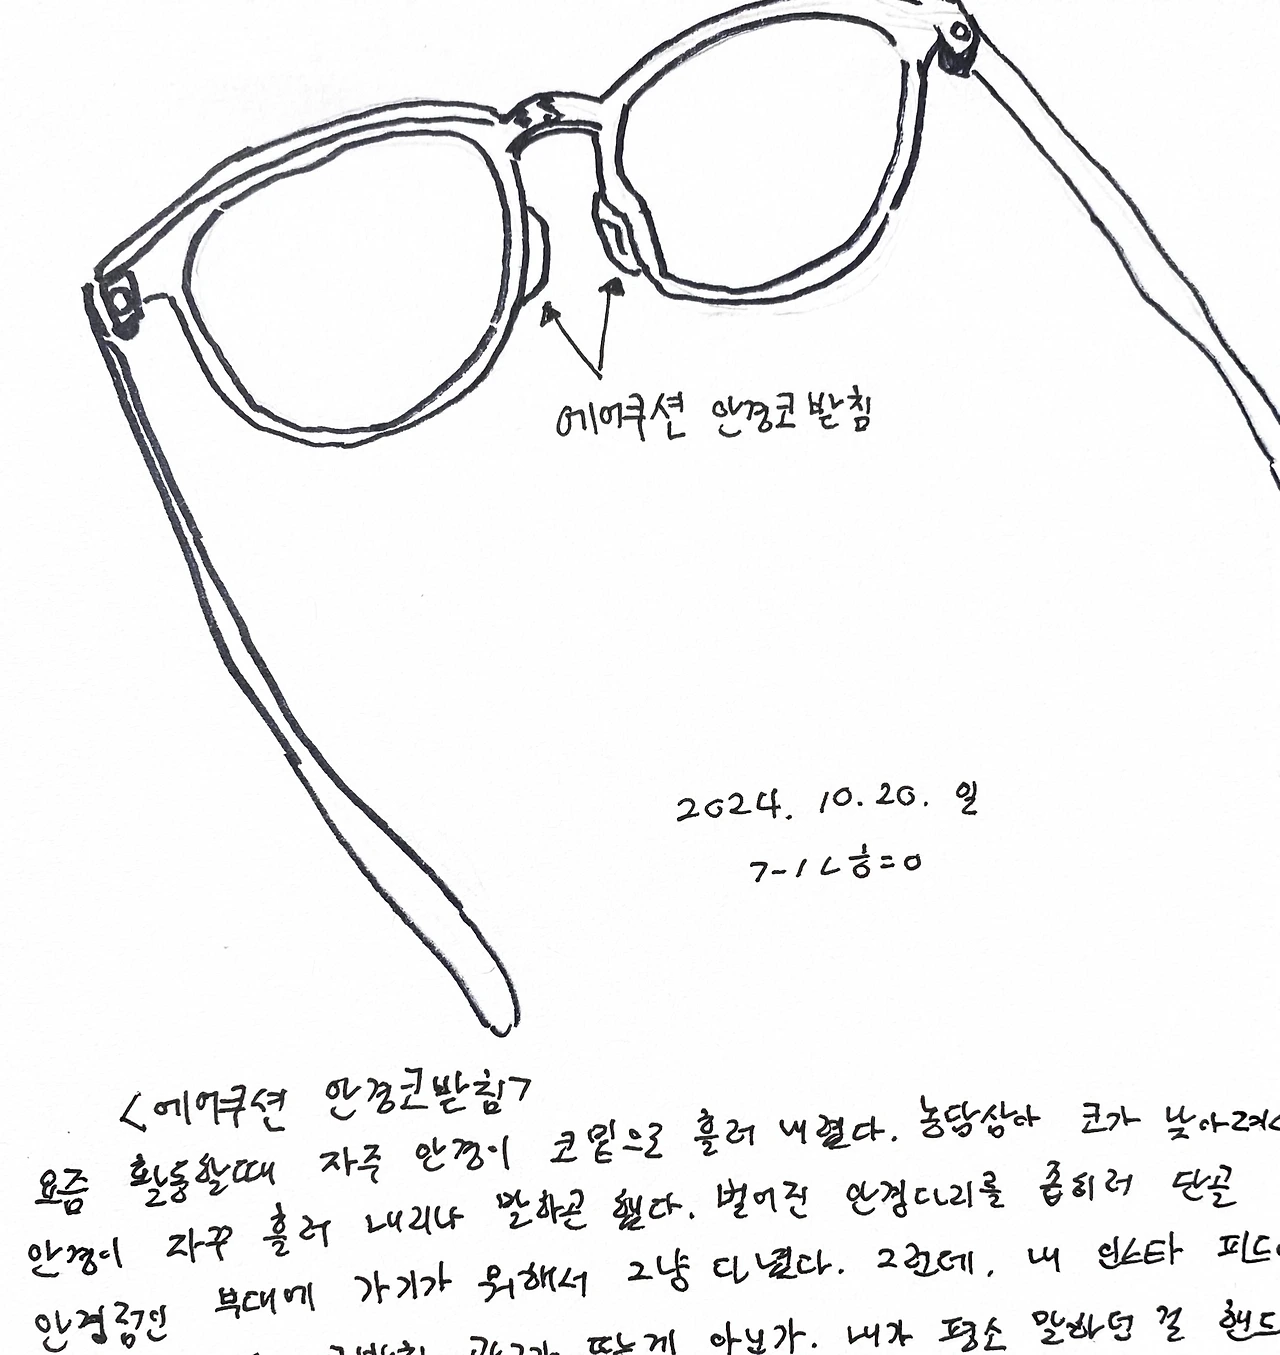 에어쿠션 안경코받침
2024. 10. 20. 일
<에어쿠션 안경코받침>
요즘 활동할때 자주 안경이 코밑으로 흘러 내렸다. 농담삼아 코가 낮아져
안경이 자꾸 흘러 내리나 말하곤 했다. 벌어진 안경다리를 좁히러 단골
안경점인 부대에 가기가 뭐해서 그냥 다녔다. 그런데, 내 인스타 피드
뜨는게 아닌가. 내가 평소 말하던 걸 핸드